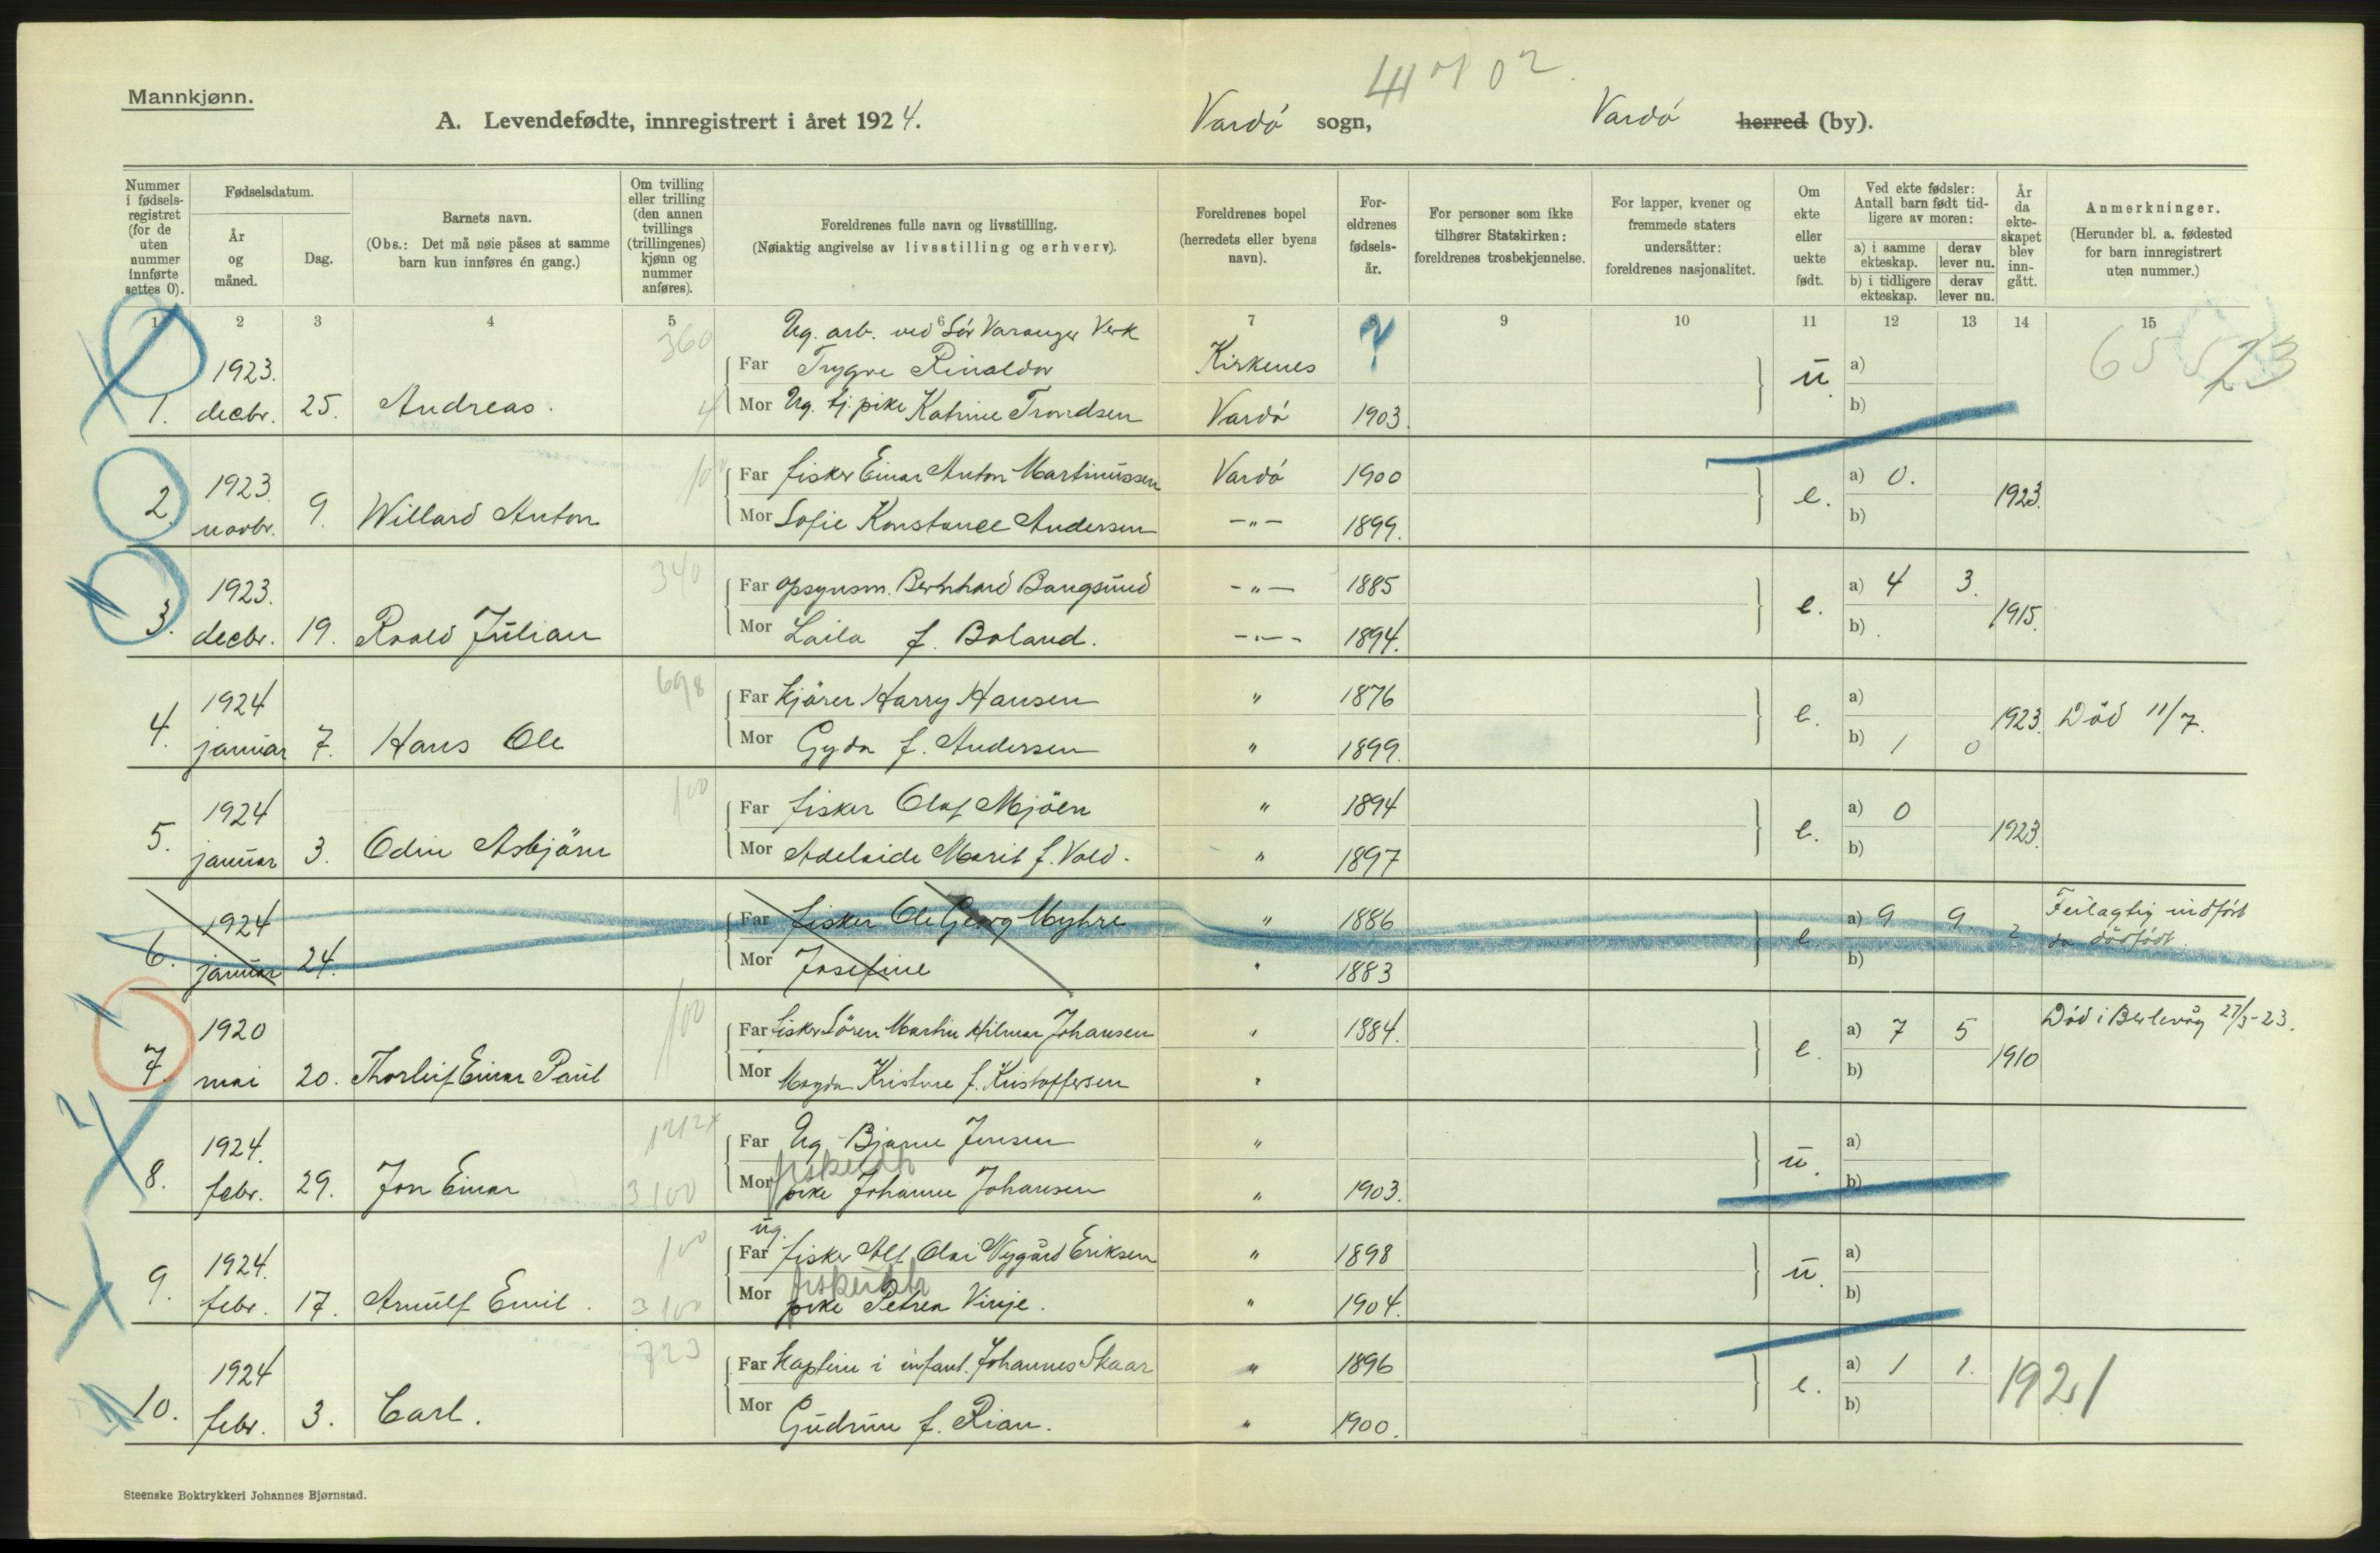 Mannkjønn.
4402
A. Levendefødte, innregistrert i året 1924.
Vardö sogn,
Vardö herred (by).
Nummer i fødselsregistret (for de uten nummer innførte settes 0).
Fødselsdatum.
År og måned.
Dag.
Barnets navn.
(Obs.: Det må nøie påses at samme barn kun innføres én gang.)
Om tvilling eller trilling (den annen tvillings (trillingenes) kjønn og nummer anføres).
Foreldrenes fulle navn og livsstilling.
(Nøiaktig angivelse av livsstilling og erhverv).
Foreldrenes bopel (herredets eller byens navn).
Foreldrenes fødselsår.
For personer som ikke tilhører Statskirken: foreldrenes trosbekjennelse.
For lapper, kvener og fremmede staters undersåtter: foreldrenes nasjonalitet.
Om ekte eller uekte født.
Ved ekte fødsler: Antall barn født tidligere av moren:
a) i samme ekteskap.
derav lever nu.
b) i tidligere ekteskap.
derav lever nu.
År da ekteskapet blev inngått.
Anmerkninger.
(Herunder bl. a. fødested for barn innregistrert uten nummer.)
1 2 3 4 5 6 7 8 9 10 11 12 13 14 15
Ug. arb. ved Sör Varanger Verk
360 Far Trygve Rinaldo Kirkenes ? a)
1. 1923. decbr. 25. Andreas. 4 Mor Ug. tj. pike Katrine Trondsen Vardö 1903. ū b) 23
2. 1923. novbr. 9. Willard Anton 100 Far fisker Einar Anton Martinussen Vardö 1900 e. a) 0. 1923.
Mor Sofie Konstance Andersen -"- 1899. b)
3. 1923. decbr. 19. Roald Julian 340 Far opsynsm. Bernhard Bangsund -"- 1885 e. a) 4 3. 1915.
Mor Laila f. Boland. -"- 1894. b)
4. 1924 januar 7. Hans Ole 698 Far Kjörer Harry Hansen " 1876 e. a) 1923. Död 11/7.
Mor Gyda f. Andersen " 1899. b) 1 0
5. 1924 januar 3. Odin Asbjörn 100 Far fisker Olaf Mjöen " 1894 e. a) 0 1923.
Mor Adelaide Marit f. Vold. " 1897 b)
6. 1924 januar 24. Far fisker Ole Georg Myhre " 1886 e. a) 9 9 ? Feilagtig indfört
da dödfödt.
Mor Josefine " 1883 b)
7. 1920 mai 20. Thorleif Einar Paul 100 Far fisker Sören Martin Hilmar Johansen " 1884. e. a) 7 5 1910 Död i Berlevåg 27/3-23.
Mor Magda Kristine f. Kristoffersen " b)
8. 1924. febr. 29. Jon Einar Far Ug. Bjarne Jensen " ū. a)
fiskerdtr
3100 Mor pike Johanne Johansen " 1903. b)
ug.
9. 1924. febr. 17. Arnulf Emil. 100 Far fisker Alf Olai Nygård Eriksen " 1898 ū. a)
fiskerdtr
3100 Mor pike Petrea Virije. " 1904. b)
10. 1924 febr. 3. Carl. 723 Far Kaptein i infant. Johannes Skaar " 1896 e. a) 1 1. 1921
Mor Gudrun f. Rian. " 1900. b)
Steenske Boktrykkeri Johannes Bjørnstad.